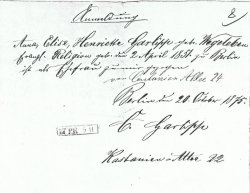 Anmeldung
8
Anna, Elise, Henriette Garlipp geb. Wegeleben
evangl. Religion geb. den 2 April 18 zu Berlin
ist als Ehefrau zu mir gezogen
von Kastanien Allee 24
Berlin den 20 October 1875.
C. Garlipp
Kastanien-Allee 22